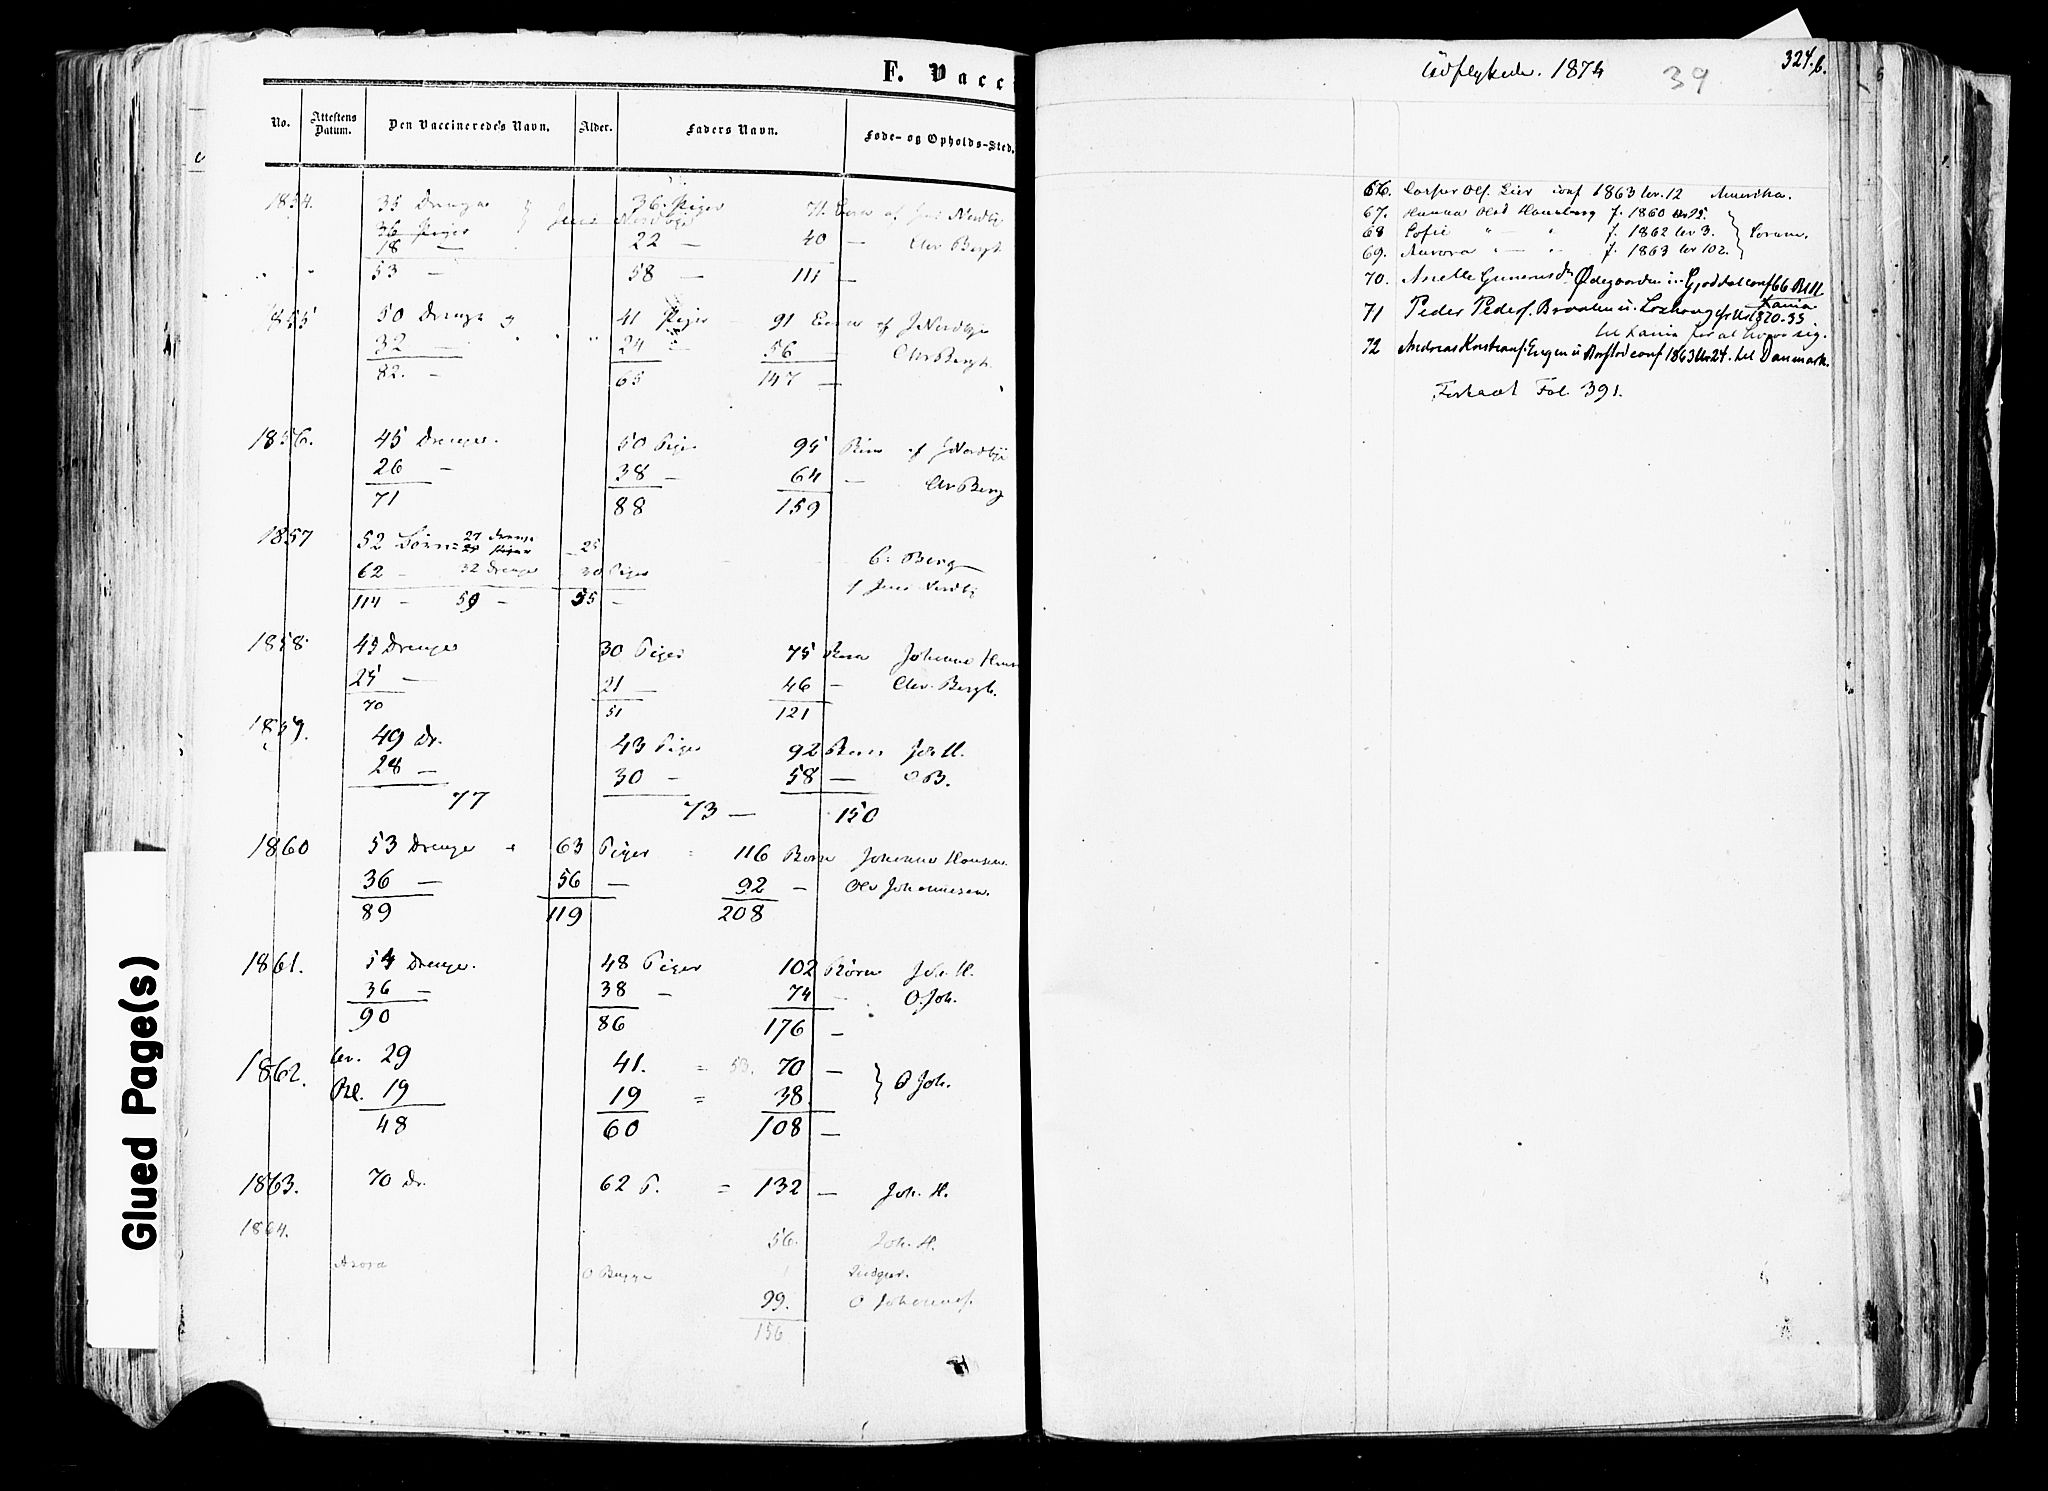 F. Vacci
No.
Attestens Datum.
Den Vaccineredes Navn.
Alder.
Faders Navn.
Føde- og Opholds-Sted.
1854. 35 Drenge 36 Piger 71 af Jens Nordby
36 Piger Jens Nordbye
18 — 22 — 40 — Chr Bergh
" " 53 — 58 — 111 —
1855 50 Drenge 41 Piger 91 Børn af J Nordbye
32 — " " 24 — 56 — Chr Bergh.
82. — 65 147 —
1856. 45 Drenge. 50 Piger 95 Børn af J Nordbye
26 — 38 — 64 — Chr Berg
71 88 159
1857 52 Børn = 27 Drenge 25
25 Piger C. Berg
62 — 32 Drenge 30 Piger Jens Nordby
114 — 59 — 55 —
1858. 45 Drenge 30 Piger 75 Børn Johannes Hans
25 — 21 — 46 — Chr. Bergh.
70 51 121
1859. 49 Dr. 43 Piger 92 Børn Joh H.
28 — 30 — 58 — C B.
77 73 — 150
1860 53 Drenge 63 Piger 116 Børn Johannes Hansen.
36 — 56 — 92 — Ole Johannesen.
89 119 208
1861. 54 Drenge. 48 Piger 102 Børn Joh. H.
36 — 38 — 74 — O. Joh.
90 86 176 —
1862. 29 41. = 53. 70 —
19 19 = 38 } O Joh.
48 60 108 —
1863. 70 Dr. 62 P. = 132 — Joh. H.
1864. 56. Joh. H.
O Bugge
99. O Johannes.
156
Glued Page(s)
Udflyttede. 1874 39 324.b.
66. Casper Ols. Lier conf 1863 Nr. 12 Amerika.
67. Hanna Olsd Hansberg f. 1860 Nr 25.
68 Sofie " — " f. 1862 Nr 3. } Sørum.
69. Aurora " — " f. 1863 Nr 102.
70. Anette Gunerusdr. Ødegaarden conf 66
71 Peder Peders. Braaten u. 1870-35
til Xania for at sig.
72 Andreas Engen u conf 1863 Nr 24. til Danmark.
Fortsat Fol. 391.